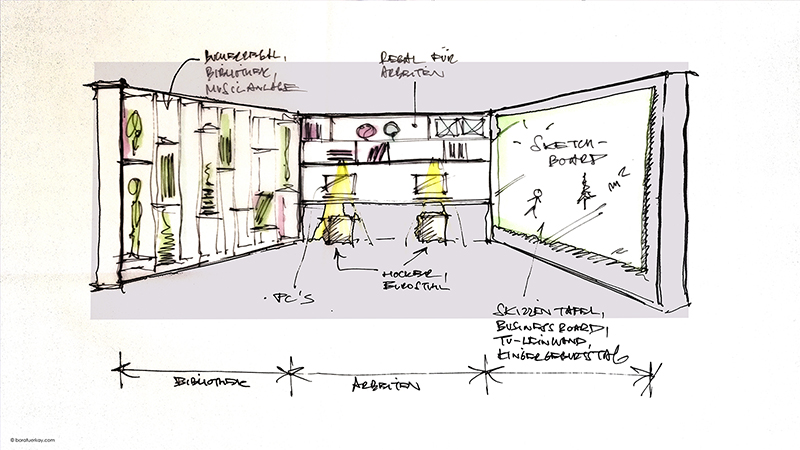 BÜCHERREGAL,
BIBLIOTHEK,
MUSICANLAGE
REGAL FÜR
ARBEITEN
SKETCH-
BOARD
PC'S
HOCKER,
EUROSTUHL
SKIZZENTAFEL,
BUSINESSBOARD,
TV-LEINWAND,
KINDERGEBURTSTAG
BIBLIOTHEK
ARBEITEN
© boratuerkay.com